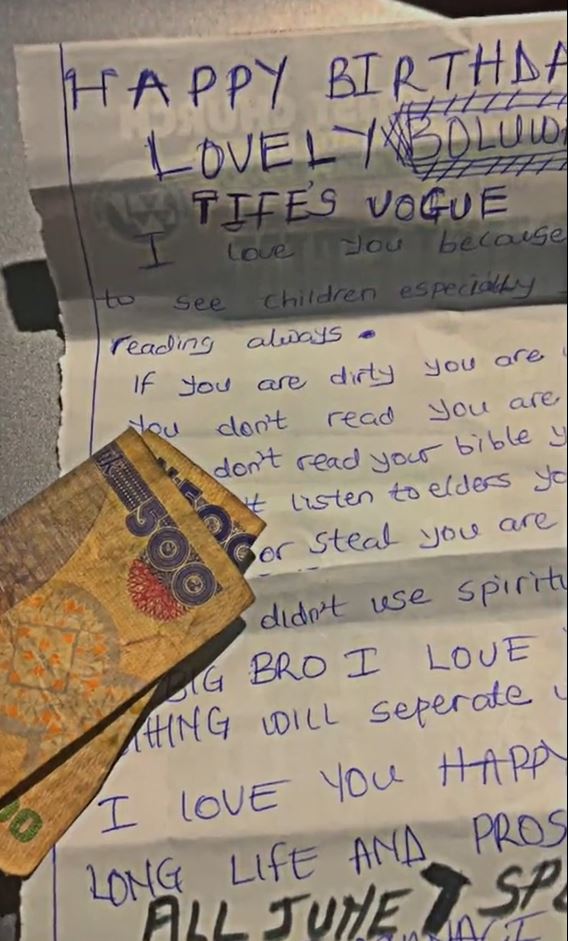 HAPPY BIRTHDA
LOVELY BOLUW
TIFE'S VOGUE
I love you because
to see children especially
reading always.
If you are dirty you are
You don't read you are
don't read your bible y
t listen to elders yo
or steal you are
didn't use spiritu
BIG BRO I LOVE
THING WILL seperate u
I LOVE YOU HAPPY
LONG LIFE AND PROS
ALL JUNE 7 SPE
500